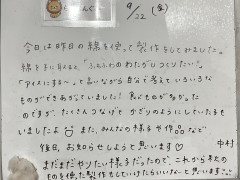 9/22 (金)
今日は昨日の綿を使って製作をしてみました。
綿を手に与えると、「ふわふわのわたがしつくりたい!」
「アイスにする〜」と言いながら自分で考えていろいろな
ものができあがっていました! 食べものが多かった
のですが、たくさんつなげてかざりのようにしている子も
いましたよ また、みんなの様子や作品など
後日、お知らせしようと思います 中村
まだまだやりたい様子だったので、これから秋の
ものを使った製作もしていけたらいいな〜と思います